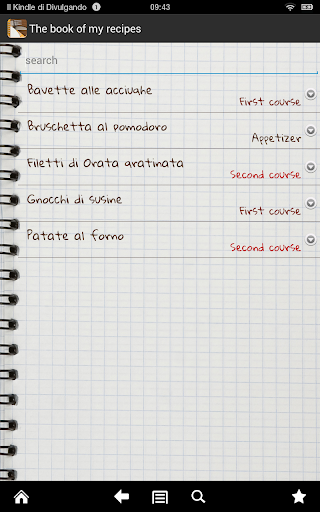 Il Kindle di Divulgando 1 09:43
The book of my recipes
search
Bavette alle acciughe
First course
Bruschetta al pomodoro
Appetizer
Filetti di Orata gratinata
Second course
Gnocchi di susine
First course
Patate al forno
Second course